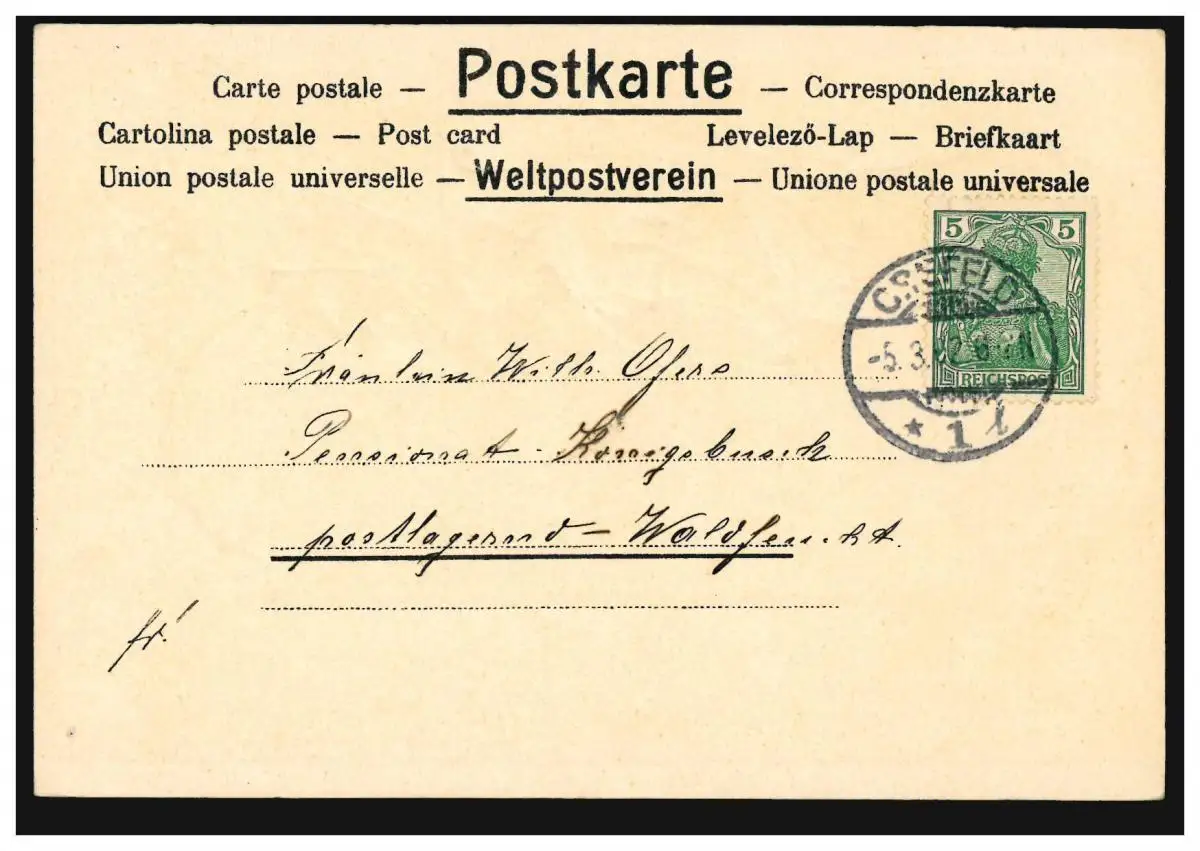 Carte postale — Postkarte — Correspondenzkarte
Cartolina postale — Post card Levelező-Lap — Briefkaart
Union postale universelle — Weltpostverein — Unione postale universale
5 5
CREFELD
-5.3.
REICHSPOST
* 1 l
Fräulein Wilh. Ofers
Pensionat Königsbusch
postlagernd – Waldfeucht.
fr!